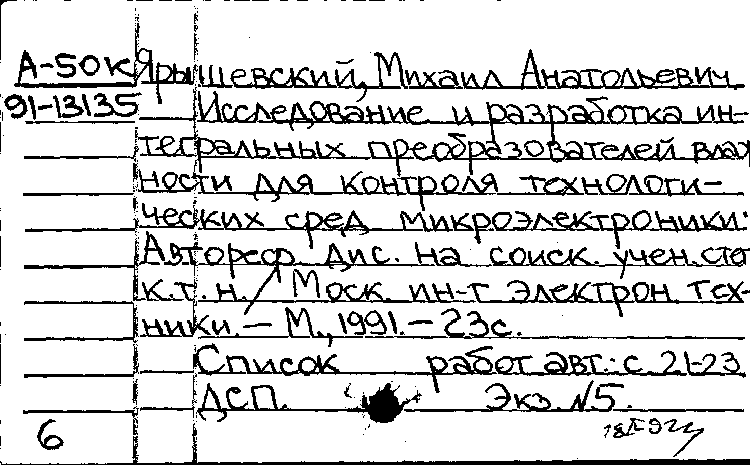 А-50к Ярышевский, Михаил Анатольевич
91-13135 Исследование и разработка ин-
тегральных преобразователей влаж
ности для контроля технологи-
ческих сред микроэлектроники:
Автореф. дис. на соиск. учен. сте
к.т.н. / Моск. ин-т электрон. тех-
ники. — М., 1991. — 23с.
Список работ авт.: с. 21-23
ДСП. Экз. №5.
6